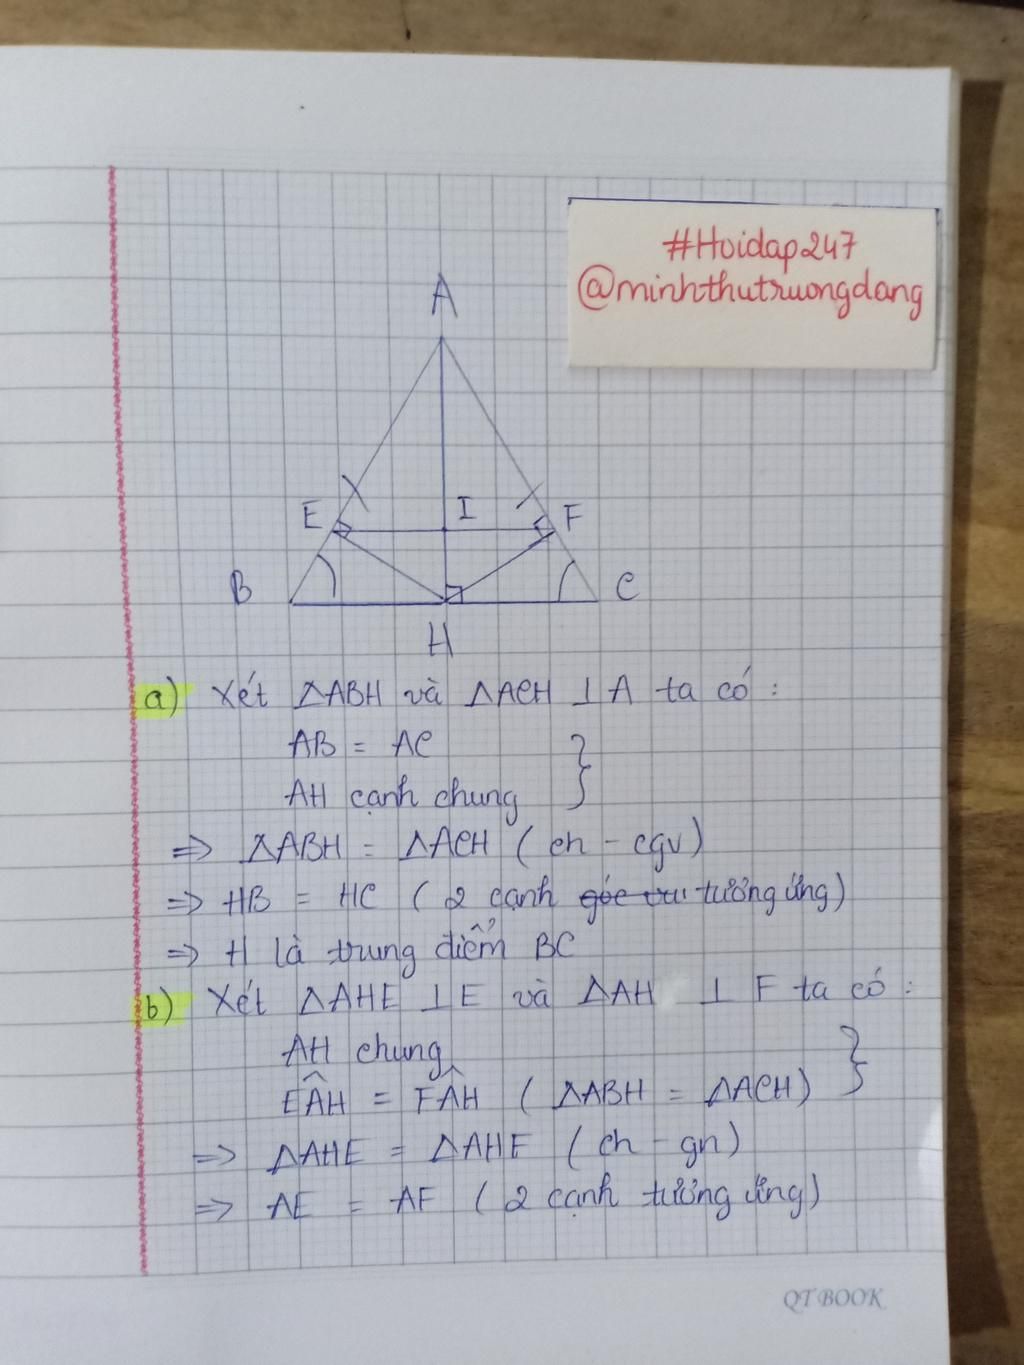 #Hoidap247
@minhthutruongdang
A
E
I
F
B
C
H
a) Xét △ABH và △ACH ⊥ A ta có :
AB = AC
AH cạnh chung }
=> △ABH = △ACH ( ch - cgv )
=> HB = HC ( 2 cạnh tương ứng )
=> H là trung điểm BC
b) Xét △AHE ⊥ E và △AH ⊥ F ta có :
AH chung
EÂH = FÂH ( △ABH = △ACH ) }
=> △AHE = △AHF ( ch - gn )
=> AE = AF ( 2 cạnh tương ứng )
QT BOOK